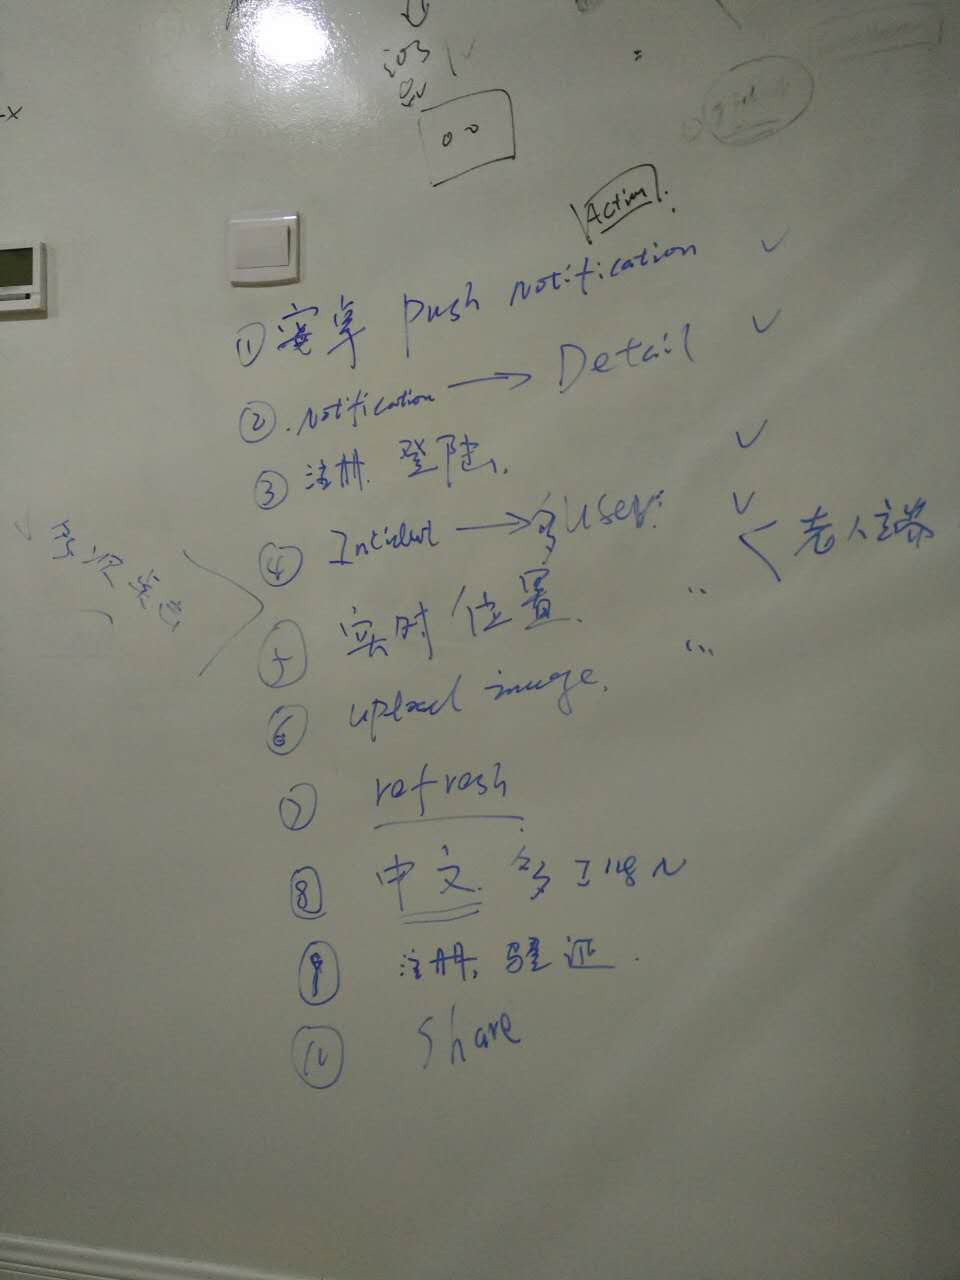 ios
Action
① 安卓 push notification
② . notification → Detail
③ 注册. 登陆.
④ → 多 user.
老人
⑤ 实时位置.
⑥ upload image.
⑦ refresh
⑧ 中文. 多 I18N
⑨ 注册, 验证.
⑩ share